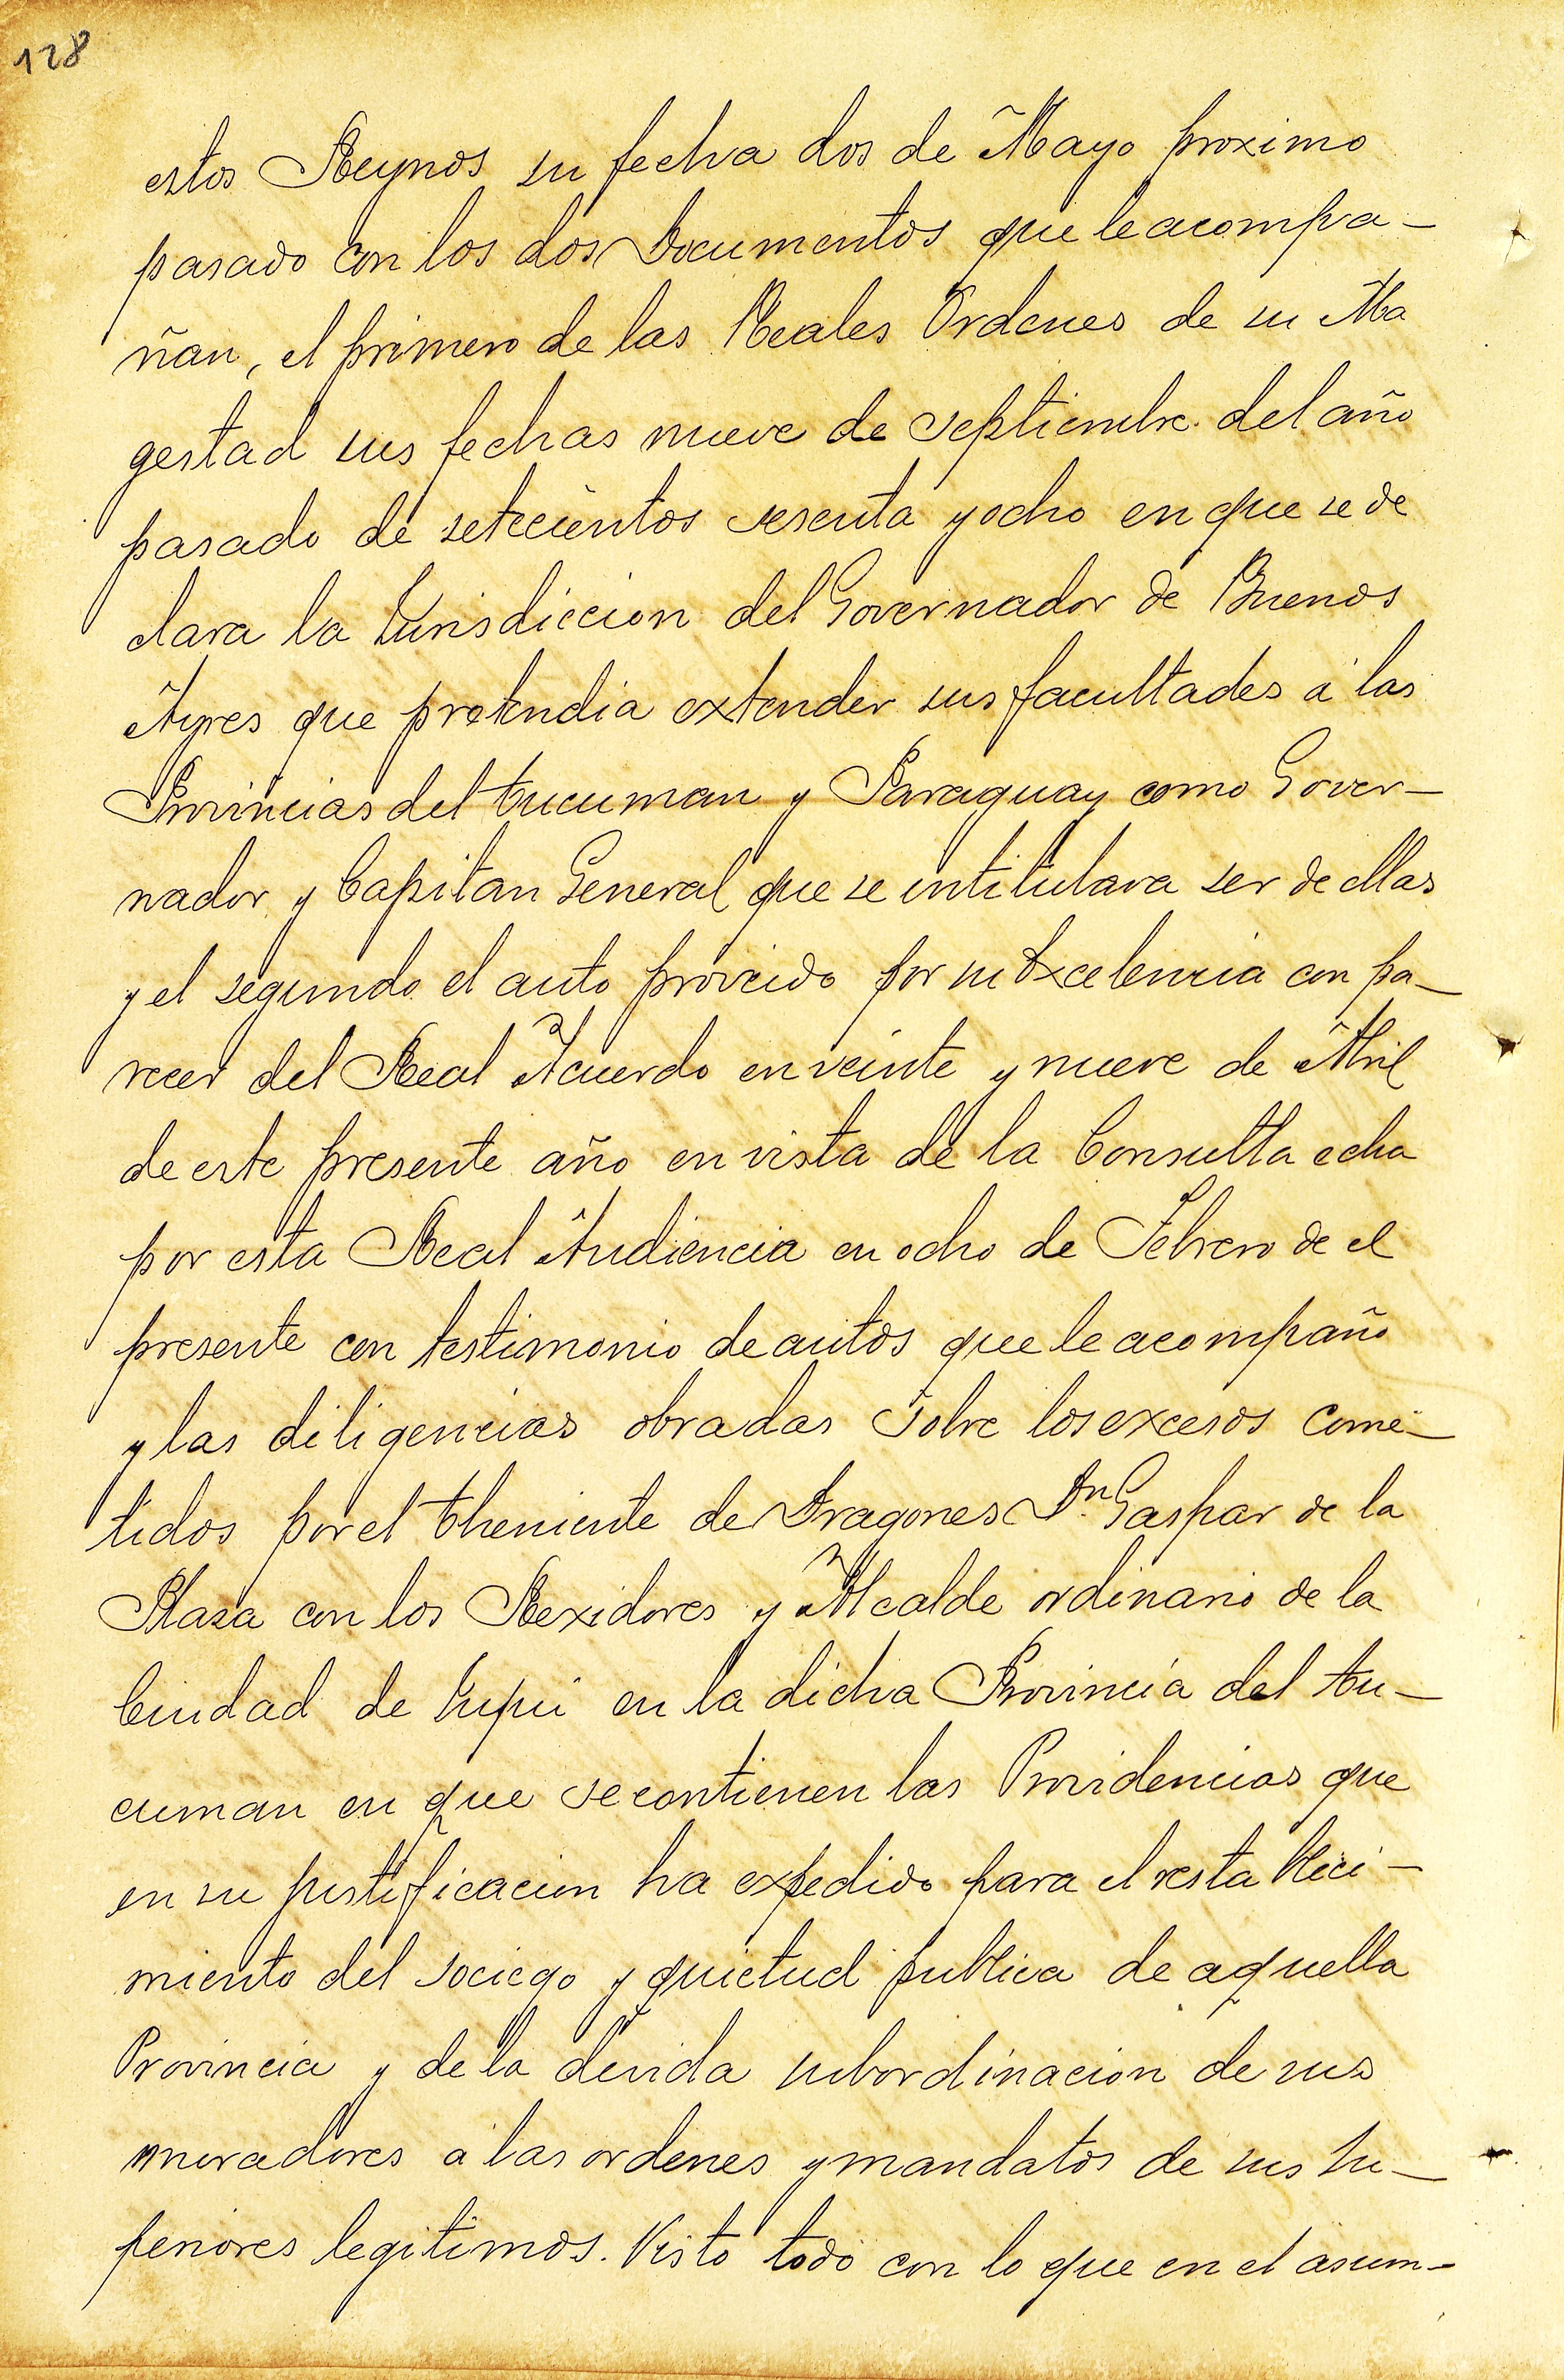 128
estos Reynos su fecha dos de Mayo proximo
pasado con los dos Documentos que le acompa-
ñan, el primero de las Reales Ordenes de su Ma
gestad sus fechas nueve de septiembre del año
pasado de setecientos sesenta y ocho en que se de
clara la Jurisdiccion del Governador de Buenos
Ayres que pretendia extender sus facultades á las
Provincias del tucuman y Paraguay como Gover-
nador y Capitan General que se intitulava ser de ellas
y el segundo el auto proveido por su Excelencia con pa-
recer del Real Acuerdo en veinte y nueve de Abril
de este presente año en vista de la Consulta echa
por esta Real Audiencia en ocho de Febrero de el
presente con testimonio de autos que le acompaño
y las diligencias obradas sobre los excesos come-
tidos por el theniente de Dragones Dn. Gaspar de la
Plasa con los Rexidores y Alcalde ordinario de la
Ciudad de Jujui en la dicha Provincia del tu-
cuman en que se contienen las Providencias que
en su justificacion ha expedido para el resta bleci-
miento del sociego y quietud publica de aquella
Provincia y de la devida subordinacion de sus
moradores a las ordenes y mandatos de sus Su-
periores legitimos. Visto todo con lo que en el asum-